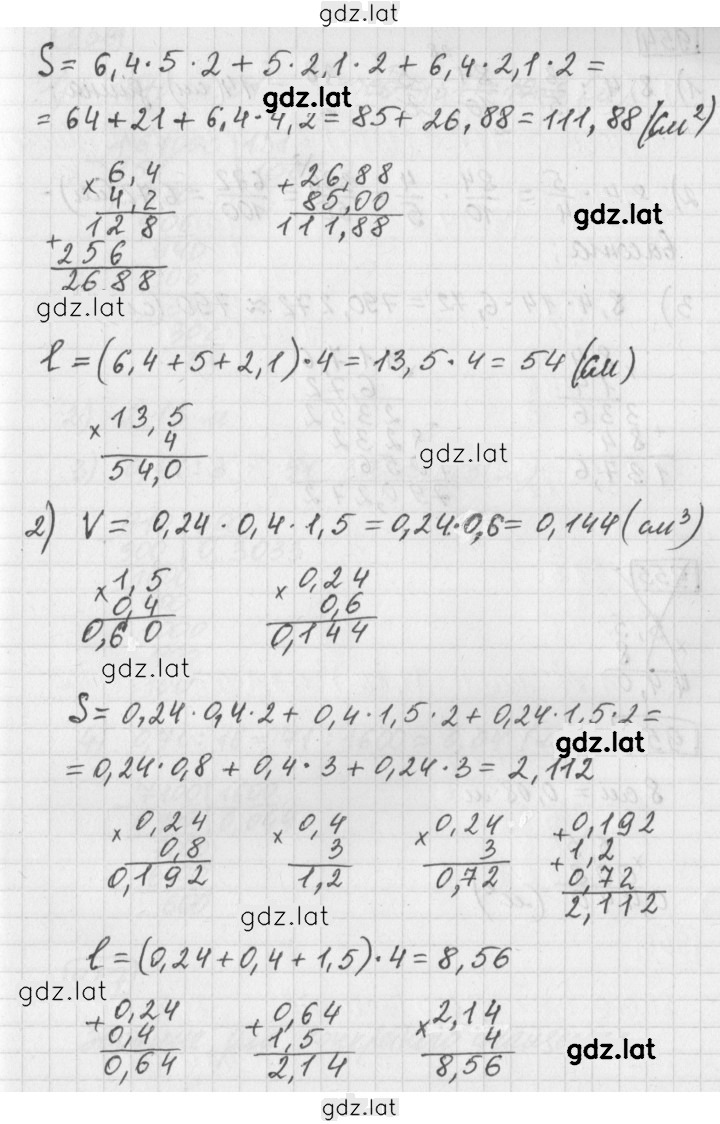 gdz.lat
S = 6,4 · 5 · 2 + 5 · 2,1 · 2 + 6,4 · 2,1 · 2 =
gdz.lat
= 64 + 21 + 6,4 · 4,2 = 85 + 26,88 = 111,88 (см²)
× 6,4
4,2
128
+ 256
2688
+ 26,88
85,00
111,88
gdz.lat
gdz.lat
l = (6,4 + 5 + 2,1) · 4 = 13,5 · 4 = 54 (см)
× 13,5
4
54,0
gdz.lat
2) V = 0,24 · 0,4 · 1,5 = 0,24 · 0,6 = 0,144 (см³)
× 1,5
0,4
0,60
× 0,24
0,6
0,144
gdz.lat
S = 0,24 · 0,4 · 2 + 0,4 · 1,5 · 2 + 0,24 · 1,5 · 2 =
gdz.lat
= 0,24 · 0,8 + 0,4 · 3 + 0,24 · 3 = 2,112
× 0,24
0,8
0,192
× 0,4
3
1,2
× 0,24
3
0,72
+ 0,192
+ 1,2
0,72
2,112
gdz.lat
l = (0,24 + 0,4 + 1,5) · 4 = 8,56
gdz.lat
+ 0,24
0,4
0,64
+ 0,64
1,5
2,14
× 2,14
4
8,56
gdz.lat
gdz.lat